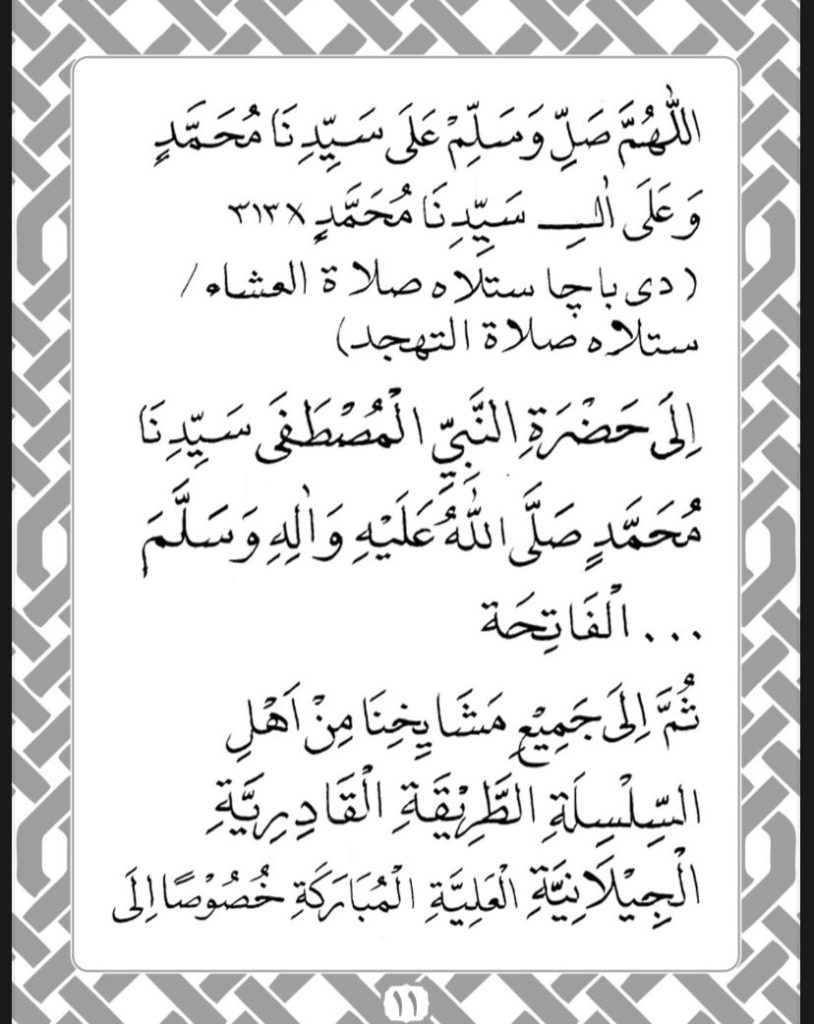 اَللّٰهُمَّ صَلِّ وَسَلِّمْ عَلَى سَيِّدِنَا مُحَمَّدٍ
وَعَلَى اٰلِ سَيِّدِنَا مُحَمَّدٍ ×٣١٣
(دى باچا ستلاه صلاة العشاء /
ستلاه صلاة التهجد)
اِلَى حَضْرَةِ النَّبِيِّ الْمُصْطَفَى سَيِّدِنَا
مُحَمَّدٍ صَلَّى اللّٰهُ عَلَيْهِ وَاٰلِهِ وَسَلَّمَ
... الْفَاتِحَة
ثُمَّ اِلَى جَمِيْعِ مَشَايِخِنَا مِنْ اَهْلِ
السِّلْسِلَةِ الطَّرِيْقَةِ الْقَادِرِيَّةِ
الْجِيْلَانِيَّةِ الْعَلِيَّةِ الْمُبَارَكَةِ خُصُوْصًا اِلَى
١١